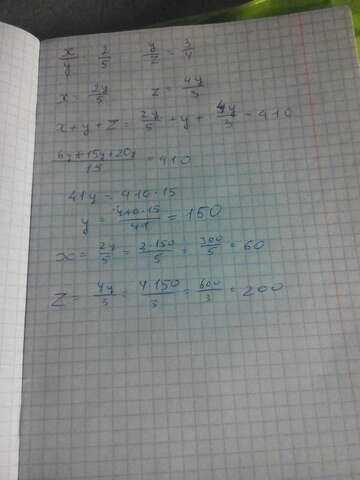 x/y = 2/5 y/z = 3/4
x = 2y/5 z = 4y/3
x+y+z = 2y/5 + y + 4y/3 = 410
6y+15y+20y/15 = 410
41y = 410·15
y = 410·15/41 = 150
x = 2y/5 = 2·150/5 = 300/5 = 60
z = 4y/3 = 4·150/3 = 600/3 = 200